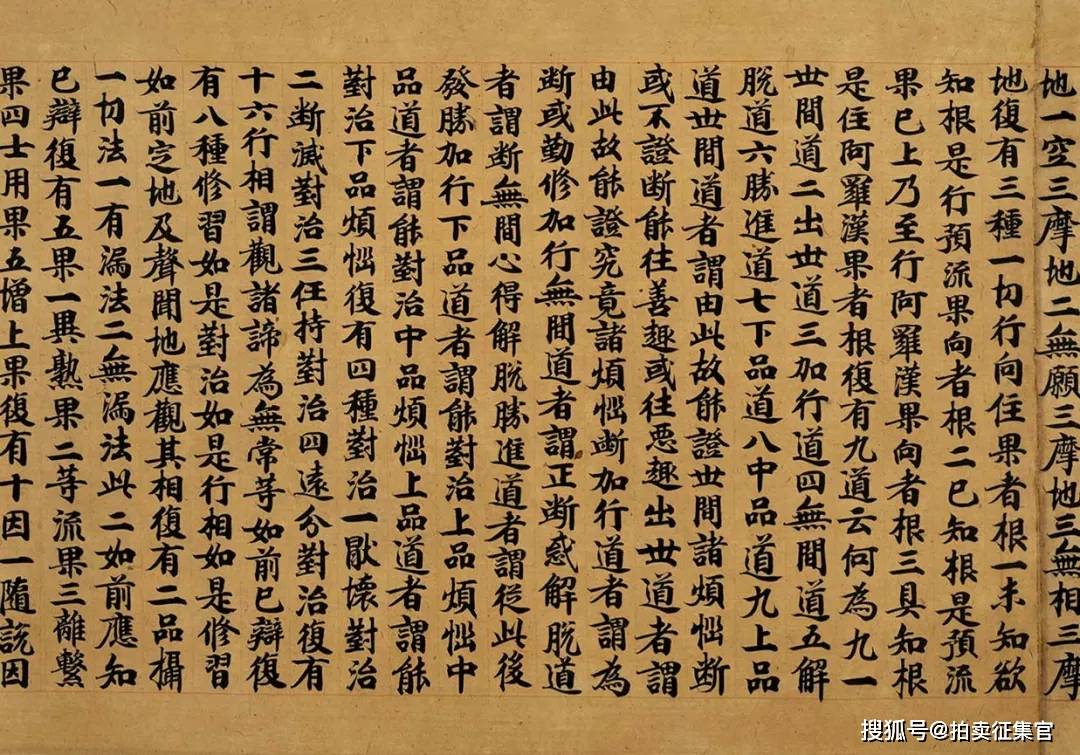 地一空三摩地二無願三摩地三無相三摩
地復有三種一切行向住果者根一未知欲
知根是行預流果向者根二已知根是預流
果已上乃至行阿羅漢果向者根三具知根
是住阿羅漢果者根復有九道云何為九一
世間道二出世道三加行道四無間道五解
脫道六勝進道七下品道八中品道九上品
道世間道者謂由此故能證世間諸煩惱斷
或不證斷能往善趣或往惡趣出世道者謂
由此故能證究竟諸煩惱斷加行道者謂為
斷或勤修加行無間道者謂正斷惑解脫道
者謂斷無間心得解脫勝進道者謂從此後
發勝加行下品道者謂能對治上品煩惱中
品道者謂能對治中品煩惱上品道者謂能
對治下品煩惱復有四種對治一厭壞對治
二斷滅對治三任持對治四遠分對治復有
十六行相謂觀諸諦為無常等如前已辯復
有八種修習如是對治如是行相如是修習
如前定地及聲聞地應觀其相復有二品攝
一切法一有漏法二無漏法此二如前應知
已辯復有五果一異熟果二等流果三離繫
果四士用果五增上果復有十因一隨說因
搜狐号@拍卖征集官